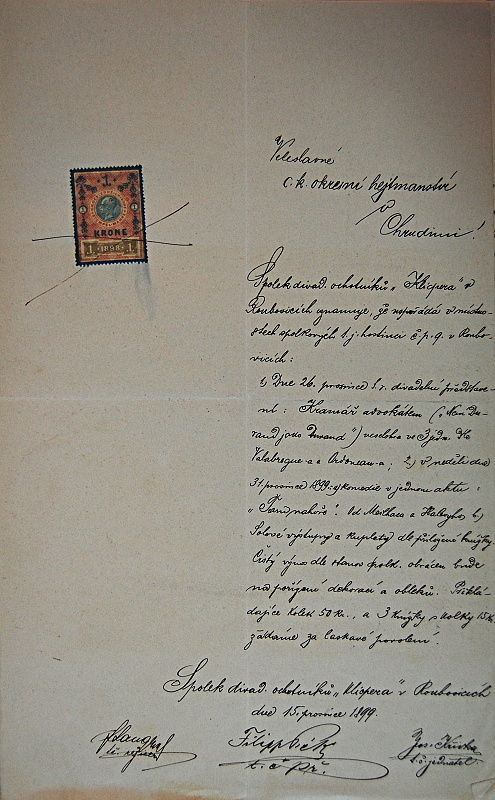 1
KRONE
1 1898 1
Veleslavné
c. k. okresní hejtmanství
v
Chrudimi!
Spolek divad. ochotníků „Klicpera" v
Rouhovicích oznamuje, že uspořádá v místno-
stech spolkových t. j. hostinci č p. 9. v Rouho-
vicích:
1) Dne 26. prosince t. r. divadelní představe-
ní: Kramář advokátem („
") veselohra ve 3 jedn. Ho
Valabregue-a a Ordonneau-a; 2) v neděli dne
31. prosince 1899: a) komedie v jednom aktu:
„Tam nahoře". Od Meilhaca a Halevyho, b)
Solové výstupy a kuplety dle přiložené knížky.
Čistý výnos dle stanov spolk. obrácen bude
na pořízení dekorací a obleků. Přiklá-
dajíce kolek 50 kr., a 3 knížky s kolky 15 kr
žádáme za laskavé povolení.
Spolek divad. ochotníků „Klicpera" v Rouhovicích
dne 15. prosince 1899.
t. č. režisér
Filipp
t. č. př.
Jos.
t. č. jednatel.